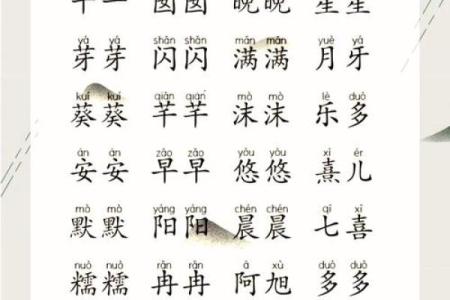 晚晚 星星
yá yá shǎn shǎn mǎn mǎn yuè yá
芽芽 闪闪 满满 月牙
kuí kuí qiān qiān mò mò lè duō
葵葵 芊芊 沫沫 乐多
ān ān zǎo zǎo yōu yōu xī ér
安安 早早 悠悠 熹儿
mò mò yáng yáng chén chén qī xǐ
默默 阳阳 晨晨 七喜
nuò nuò rǎn rǎn ā xù duō duō
糯糯 冉冉 阿旭 多多